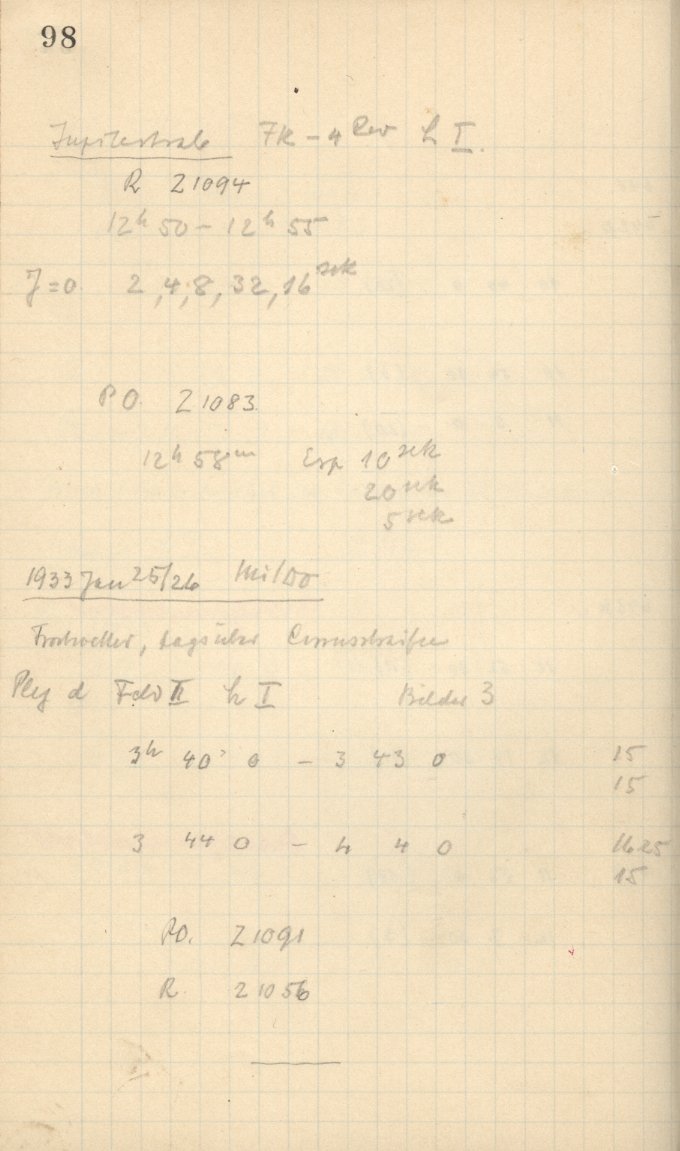 98
Jupiterstrals FK – 4 Rev h I.
R Z 1094
12h 50 – 12h 55
J = 0. 2, 4, 8, 32, 16 sek
P O. Z 1083.
12h 58m Exp 10 sek
20 sek
5 sek
1933 Jan 25/26 Mi/Do
Frostwetter, tagsüber Cirrusstreifen
Plej d Feld II h I Bilder 3
3h 40' 0 – 3 43 0 15
15
3 44 0 – 4 4 0 1625
15
PO. Z 1091
R. Z 1056